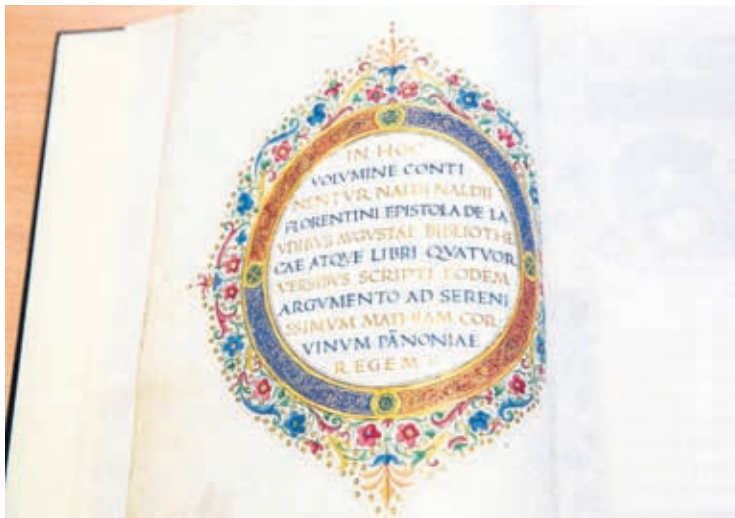 IN HOC
VOLVMINE CONTI
NENTVR NALDI NALDII
FLORENTINI EPISTOLA DE LA
VDIBVS AVGVSTAE BIBLIOTHE
CAE ATQVE LIBRI QVATVOR
VERSIBVS SCRIPTI EODEM
ARGVMENTO AD SERENI
SSIMVM MATHIAM COR
VINVM PĀNONIAE
REGEM